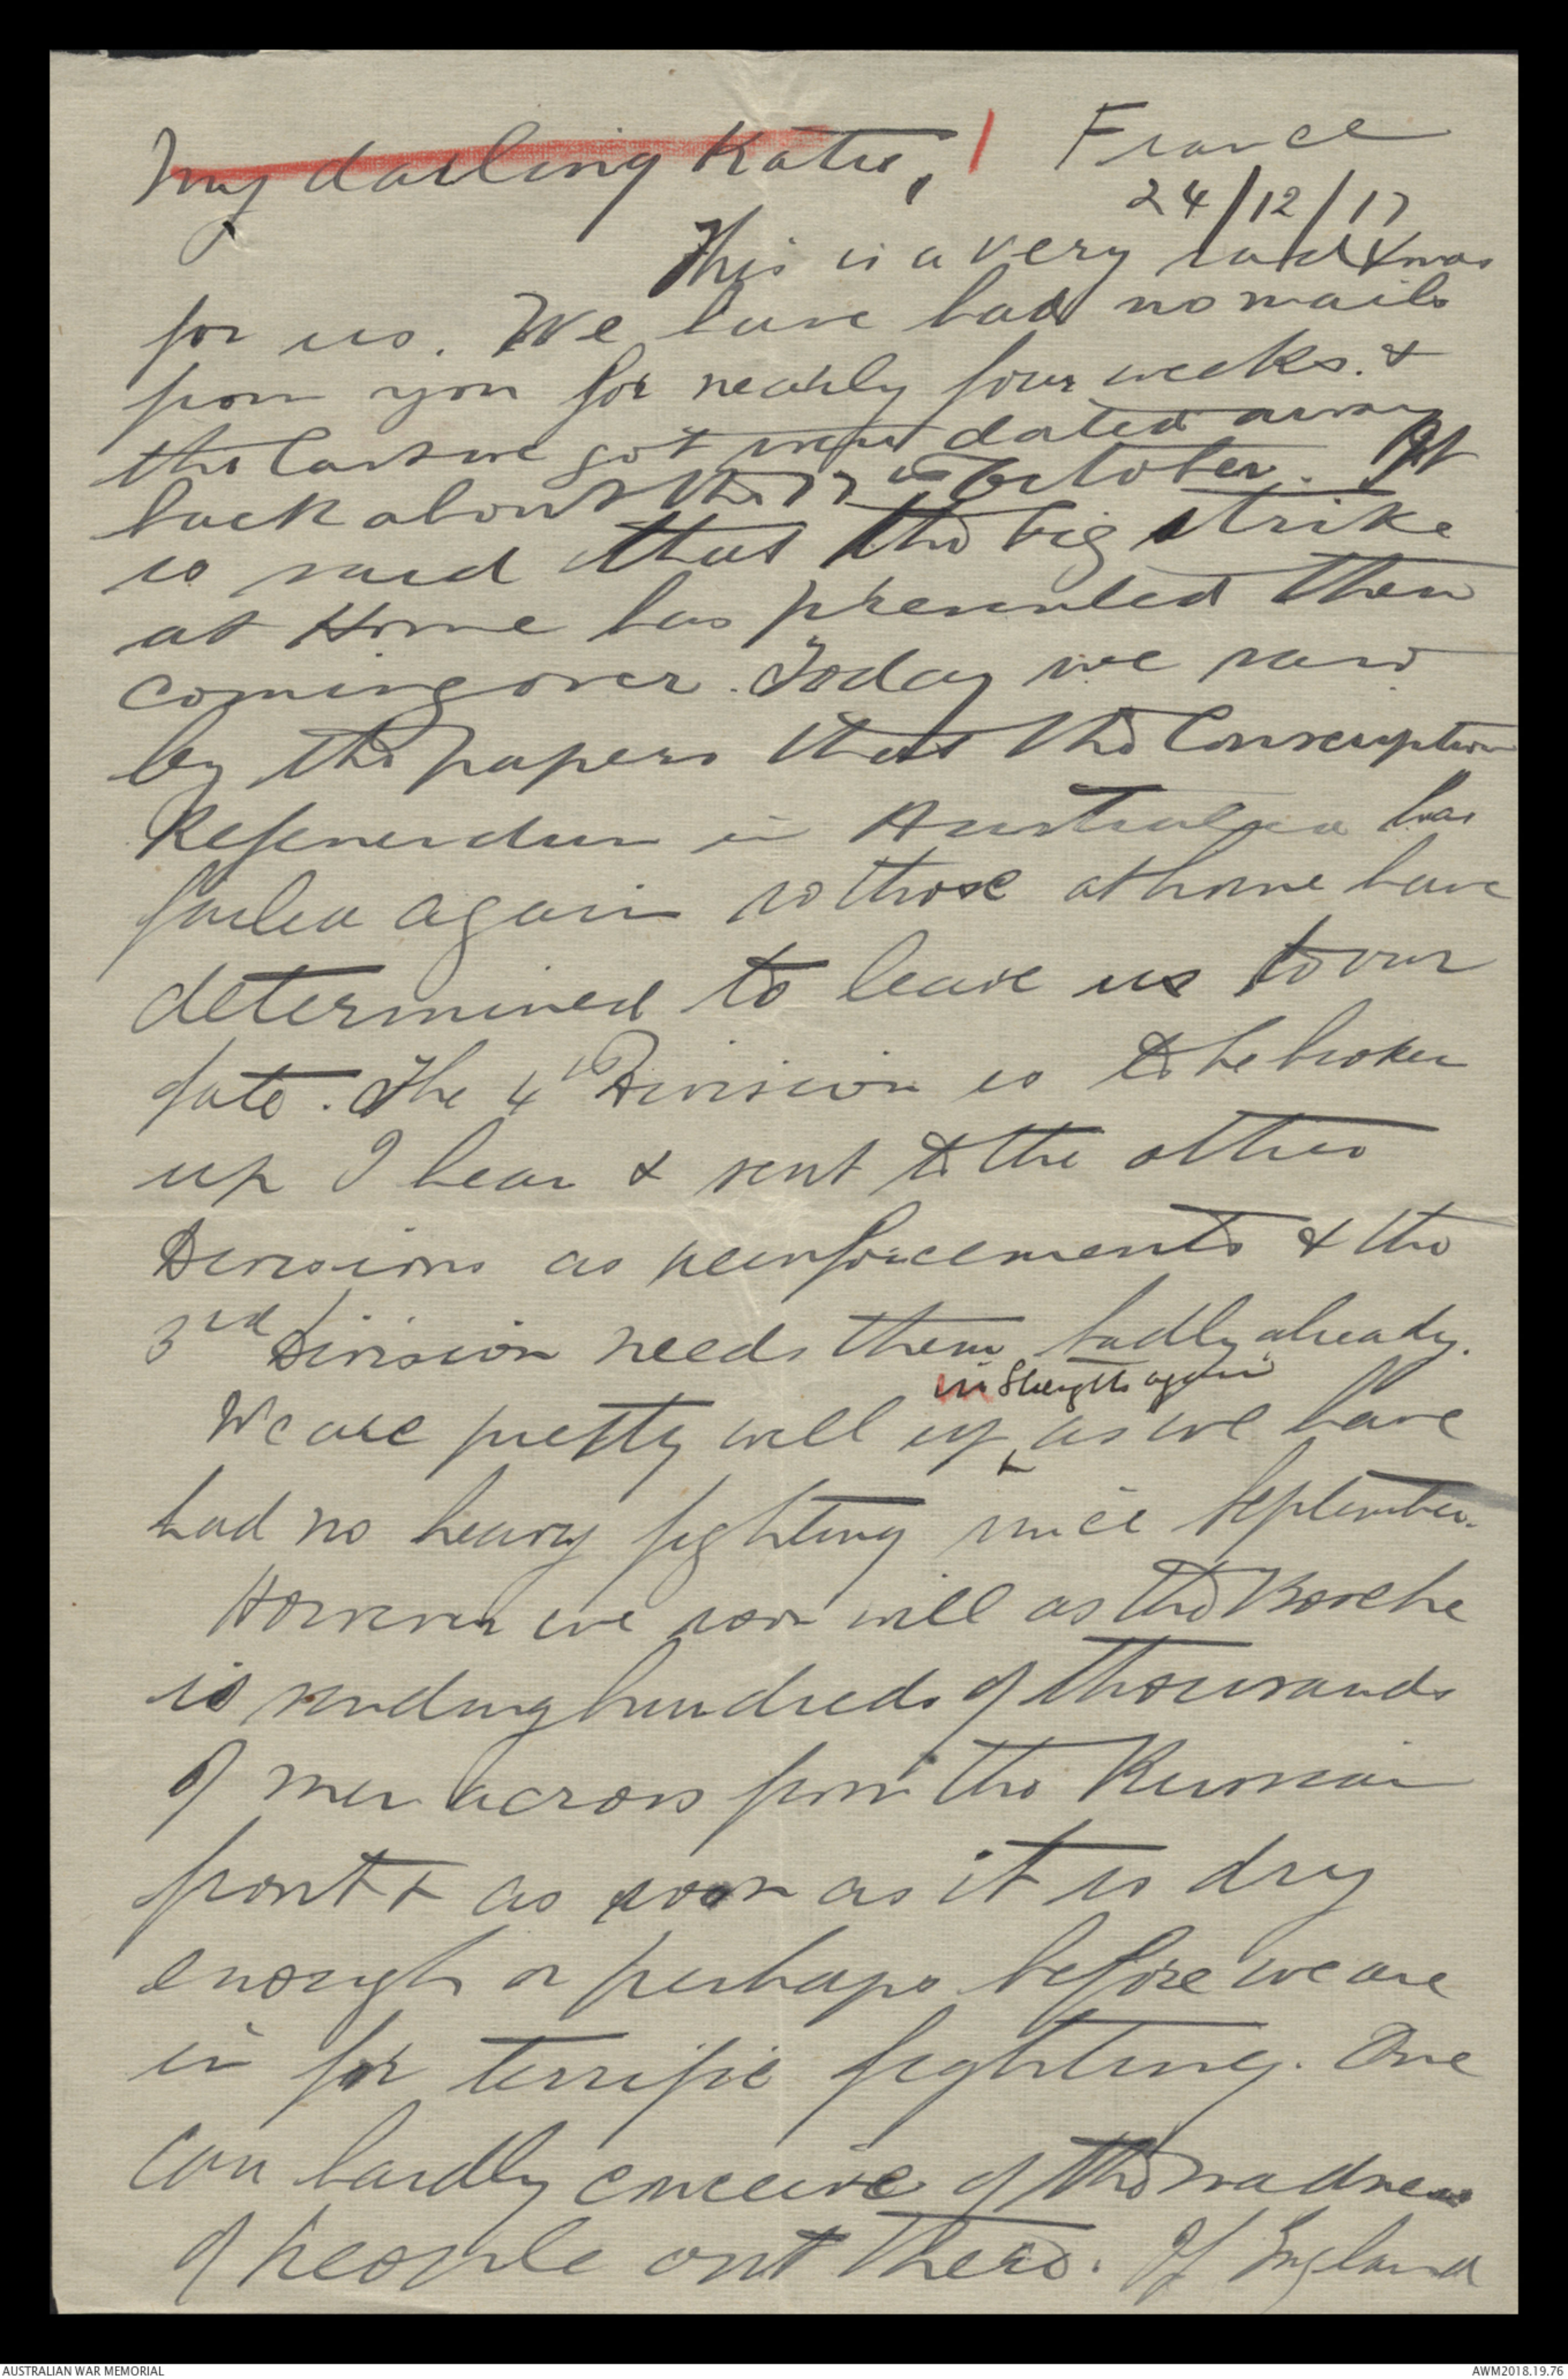 My darling Katie, | France
24/12/17
This is a very sad Xmas
for us. We have had no mails
from you for nearly four weeks. &
the last we got were dated away
back about the 17th October. It
is said that the big strike
at Home has prevented them
coming over. Today we saw
by the papers that the Conscription
Referendum in Australia has
failed again so those at home have
determined to leave us to our
fate. The 4th Division is to be broken
up I hear & sent to the other
Divisions as reinforcements & the
3rd Division needs them badly already.
in Strength again
We are pretty well up as we have
had no heavy fighting since September.
However we soon will as the Bosche
is sending hundreds of thousands
of men across from the Russian
front & as soon as it is dry
enough or perhaps before we are
in for terrific fighting. One
can hardly conceive of the madness
of people out there. If England
AUSTRALIAN WAR MEMORIAL AWM2018.19.76